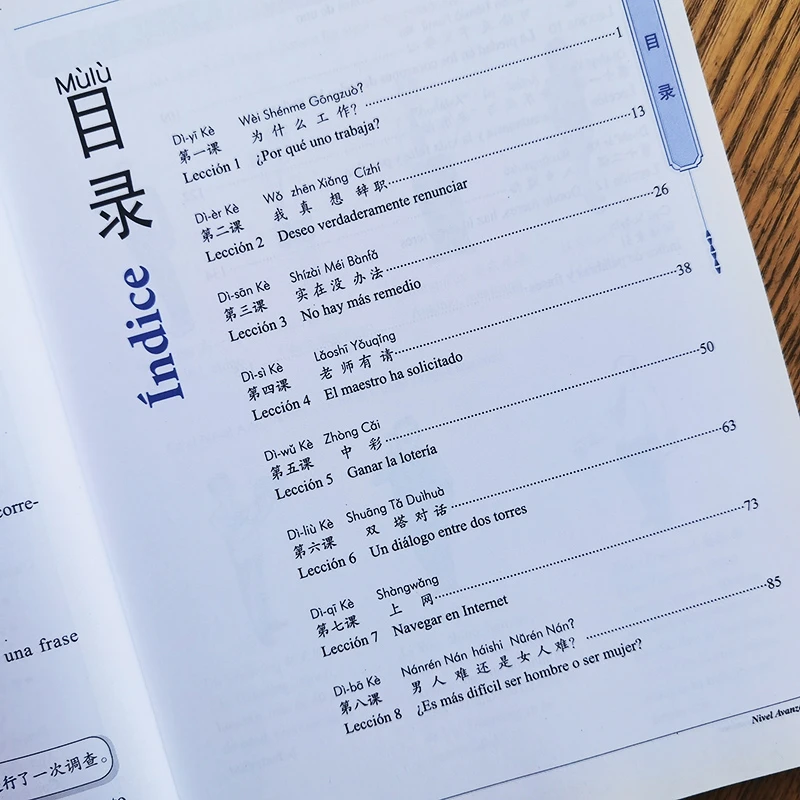 Mùlù
目录
Índice
Dì-yī Kè Wèi Shénme Gōngzuò?
第一课 为什么工作? 1
Lección 1 ¿Por qué uno trabaja?
Dì-èr Kè Wǒ zhēn Xiǎng Cízhí
第二课 我真想辞职 13
Lección 2 Deseo verdaderamente renunciar
Dì-sān Kè Shízài Méi Bànfǎ
第三课 实在没办法 26
Lección 3 No hay más remedio
Dì-sì Kè Lǎoshī Yǒuqǐng
第四课 老师有请 38
Lección 4 El maestro ha solicitado
Dì-wǔ Kè Zhòng Cǎi
第五课 中彩 50
Lección 5 Ganar la lotería
Dì-liù Kè Shuāng Tǎ Duìhuà
第六课 双塔对话 63
Lección 6 Un diálogo entre dos torres
Dì-qī Kè Shàngwǎng
第七课 上网 73
Lección 7 Navegar en Internet
Dì-bā Kè Nánrén Nán háishi Nǚrén Nán?
第八课 男人难还是女人难? 85
Lección 8 ¿Es más difícil ser hombre o ser mujer?
目录
corre-
una frase
行了一次调查。
Nivel